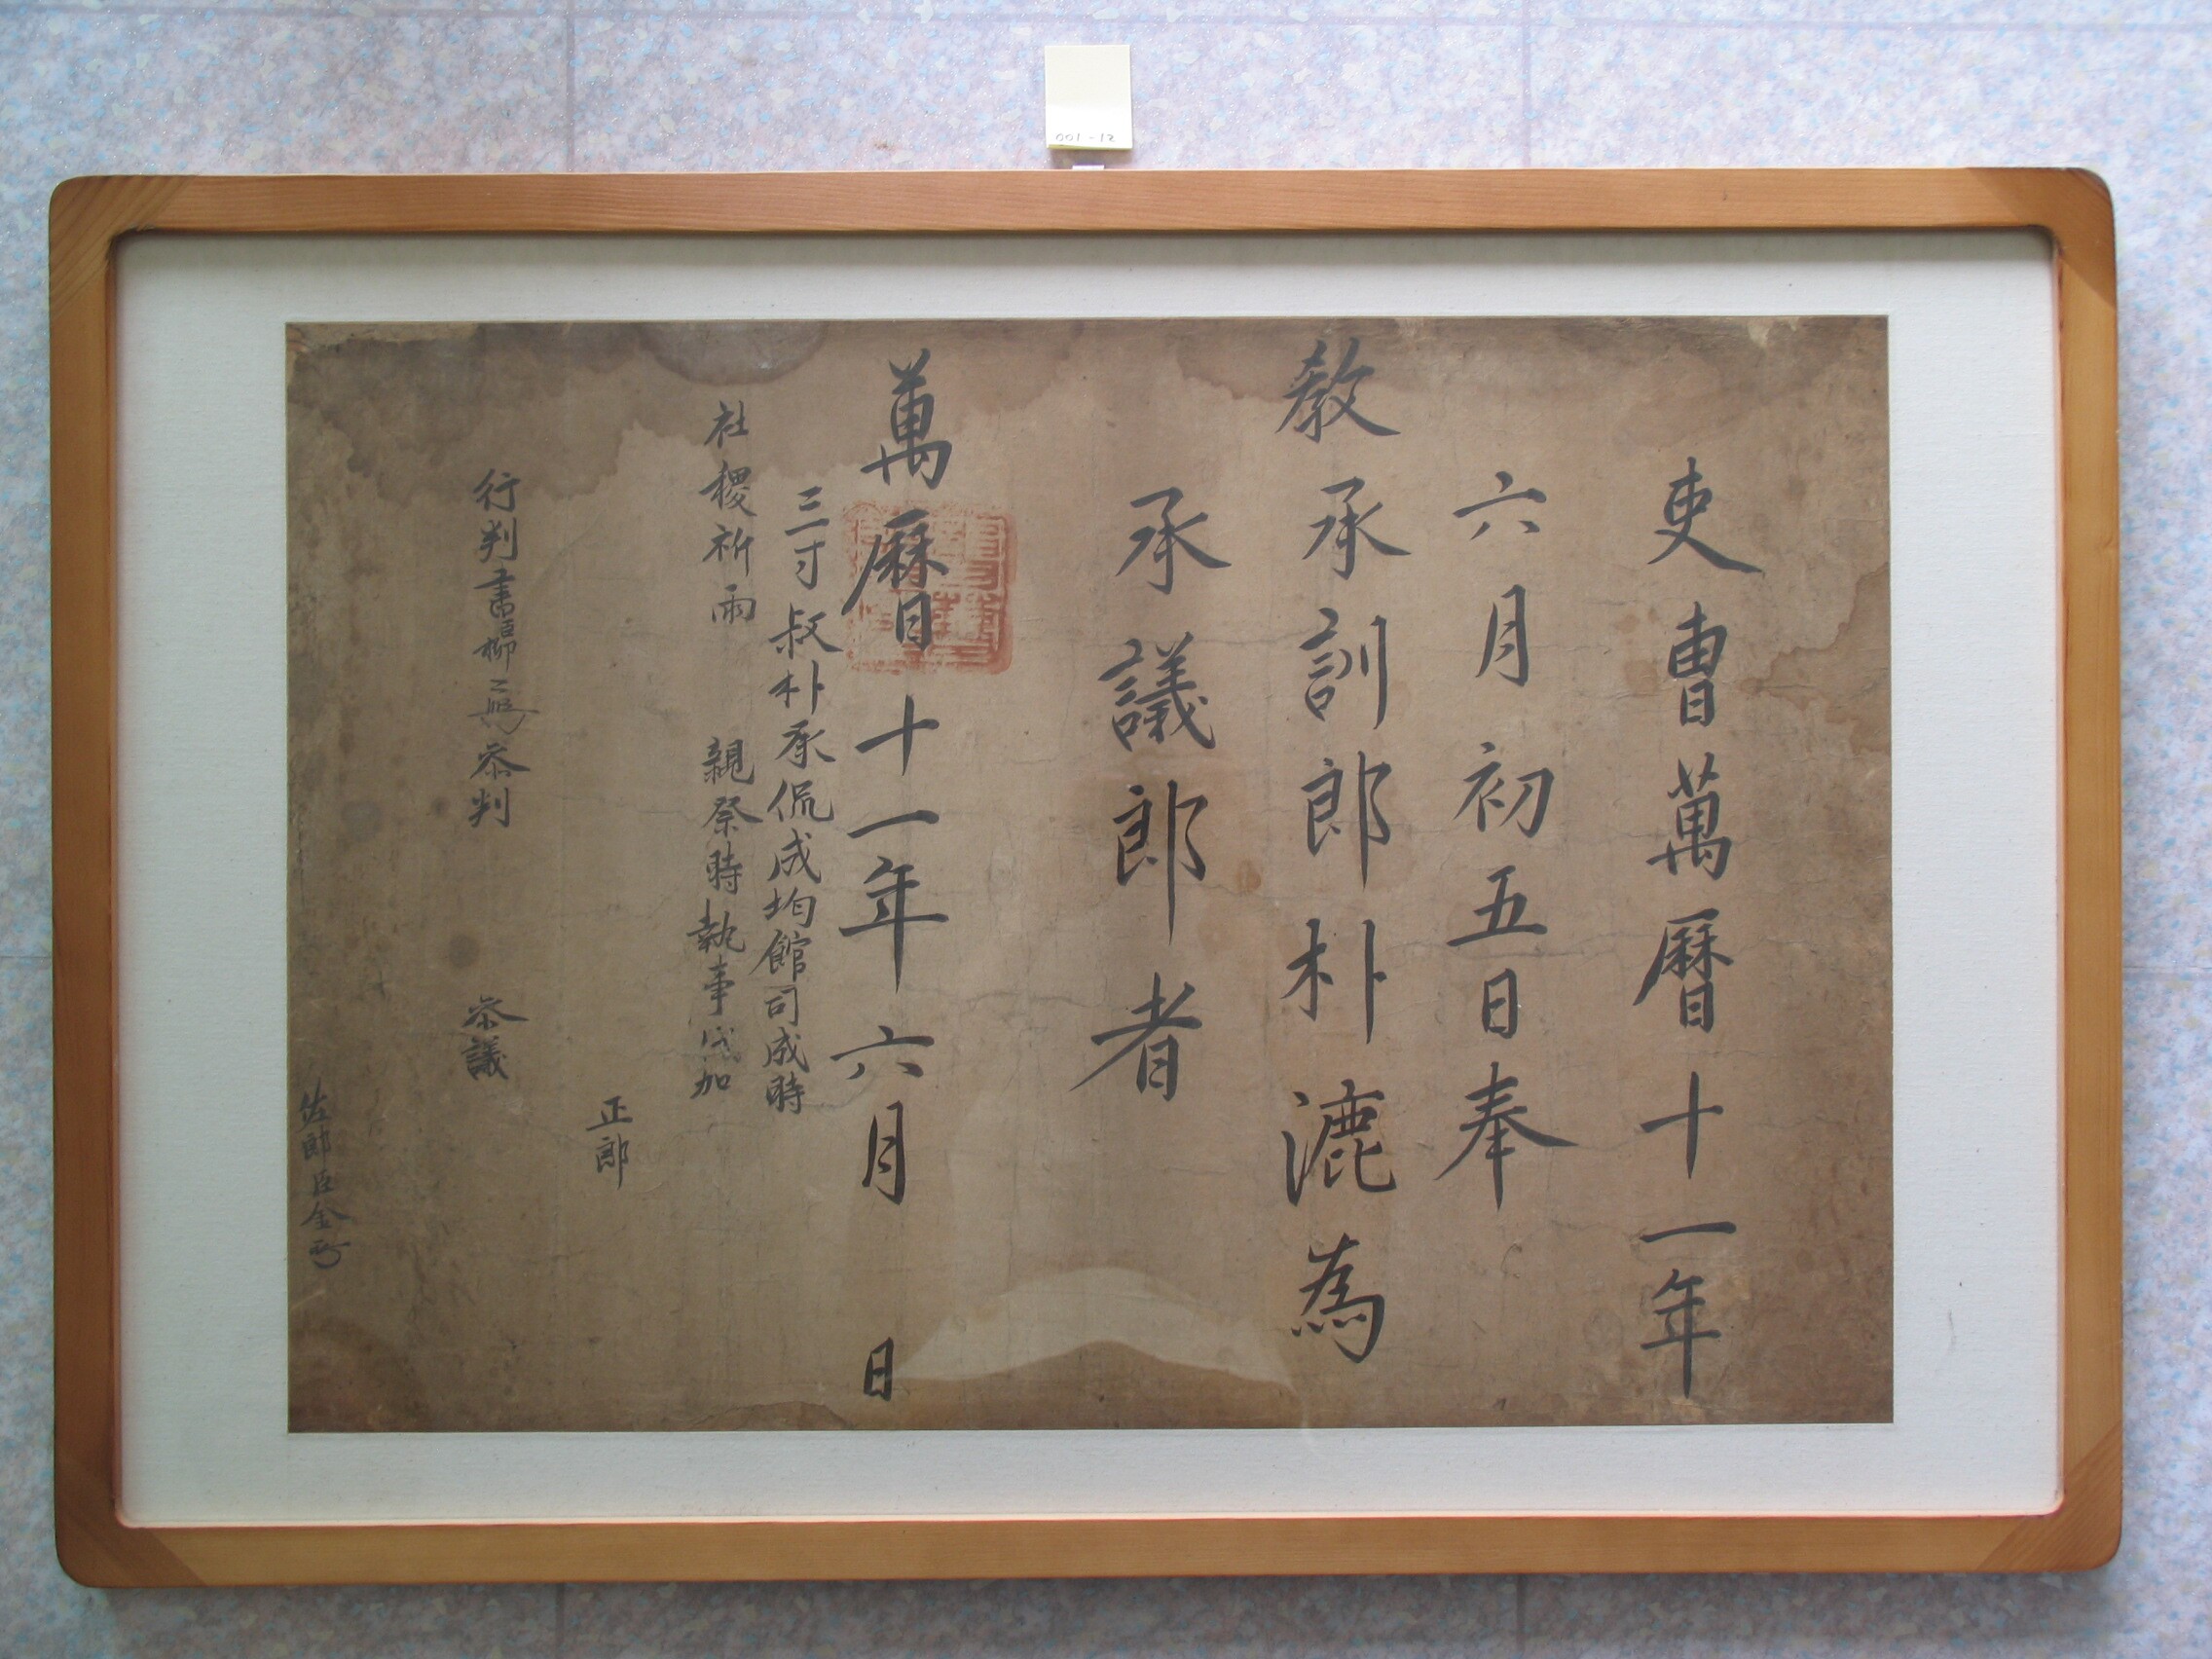 001-12
吏曹萬曆十一年
六月初五日奉
教承訓郎朴漉為
承議郎者
萬曆十一年六月 日
三寸叔朴承侃成均館司成時
社稷祈雨 親祭時執事代加
正郎
行判書臣柳 參判 參議
佐郎臣金